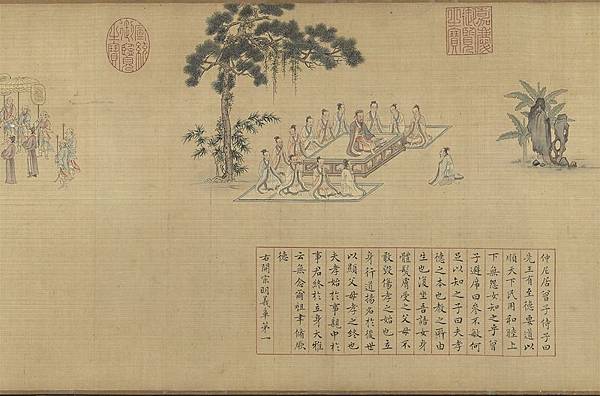 嘉慶
御覽
之寶
御覽
之寶
仲尼居曾子侍子曰
先王有至德要道以
順天下民用和睦上
下無怨女知之乎曾
子避席曰參不敏何
足以知之子曰夫孝
德之本也教之所由
生也復坐吾語女身
體髮膚受之父母不
敢毀傷孝之始也立
身行道揚名於後世
以顯父母孝之終也
夫孝始於事親中於
事君終於立身大雅
云無念爾祖聿脩厥
德
右開宗明義章第一